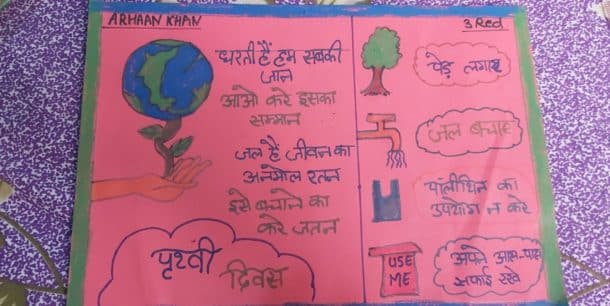 ARHAAN KHAN
3 Red
धरती हैं हम सबकी
जान
आओ करे इसका
सम्मान
जल हैं जीवन का
अनमोल रतन
इसे बचाने का
करे जतन
पृथ्वी
दिवस
पेड़ लगाए
जल बचाए
पॉलीथिन का
उपयोग न करे
USE
ME
अपने आस-पास
सफाई रखे